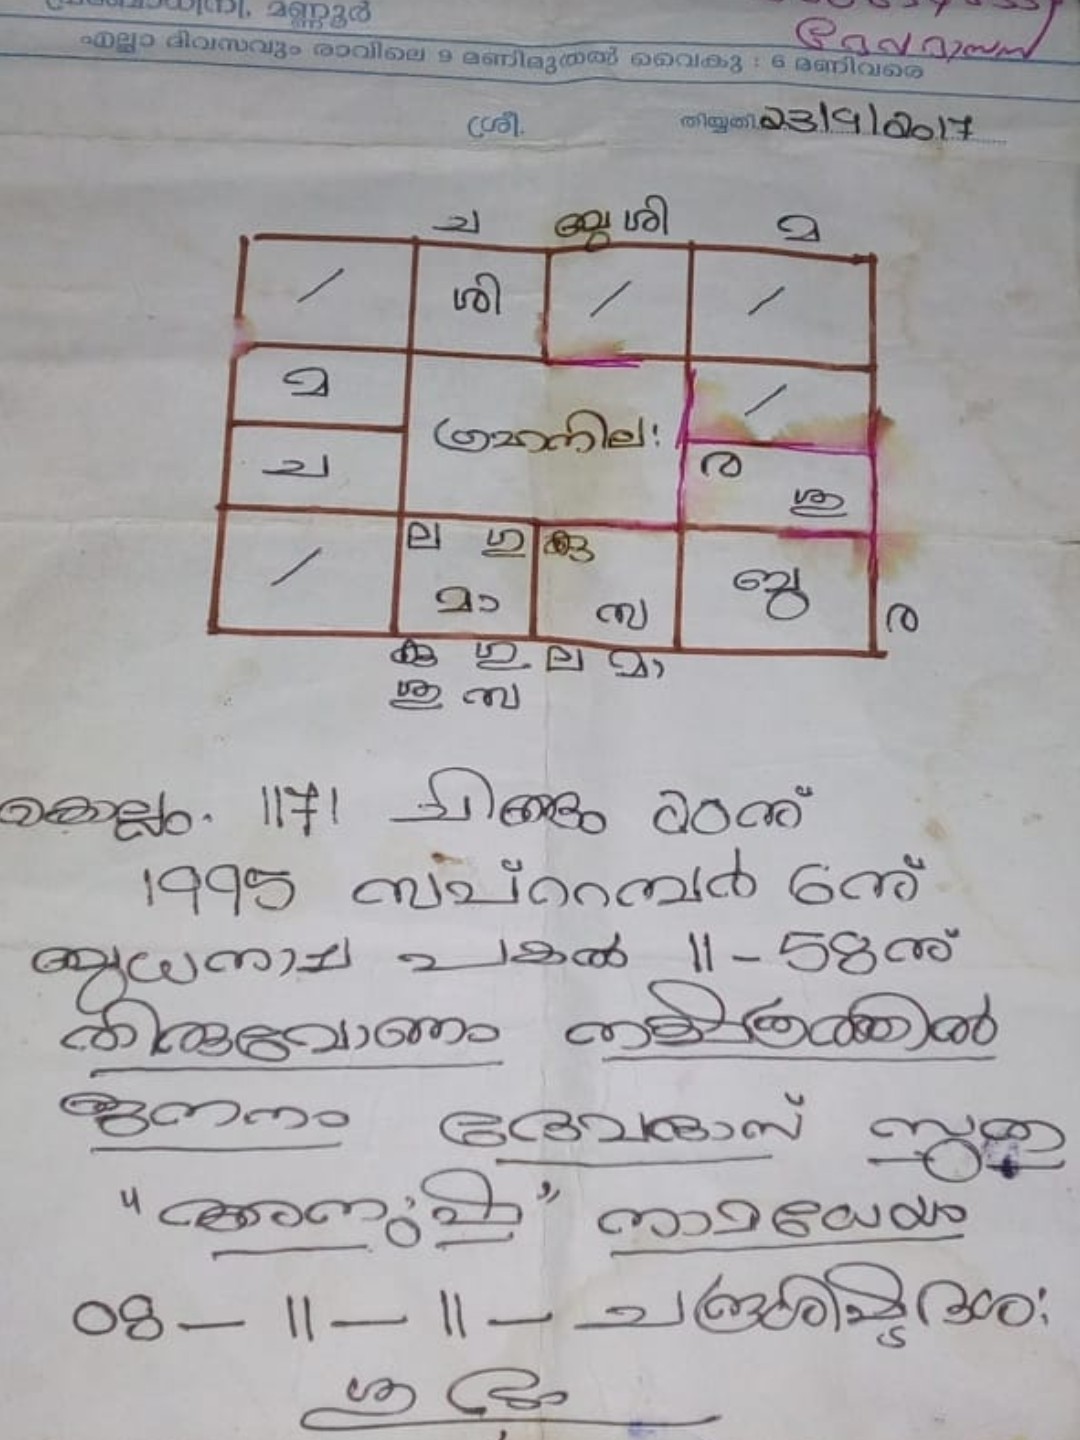 മണ്ണൂർ
ദേവദാസൻ
എല്ലാ ദിവസവും രാവിലെ 9 മണിമുതൽ വൈകു : 6 മണിവരെ
ശ്രീ.
തിയ്യതി 23/9/2017
ച ബു ശി മ
/ ശി / /
മ /
ഗ്രഹനില:
ച ര ശു
/ ല ഗു കു ബു
മാ സ ര
കു ഗു ല മാ
ശു സ
കൊല്ലം. 1171 ചിങ്ങം 20ന്
1995 സപ്റ്റമ്പർ 6ന്
ബുധനാഴ്ച പകൽ 11-58ന്
തിരുവോണം നക്ഷത്രത്തിൽ
ജനനം ദേവദാസ് സുത
"അനുഷ" നാമധേയ
08 — 11 — 11 — ചന്ദ്രശിഷ്ടദശ:
ശുഭം